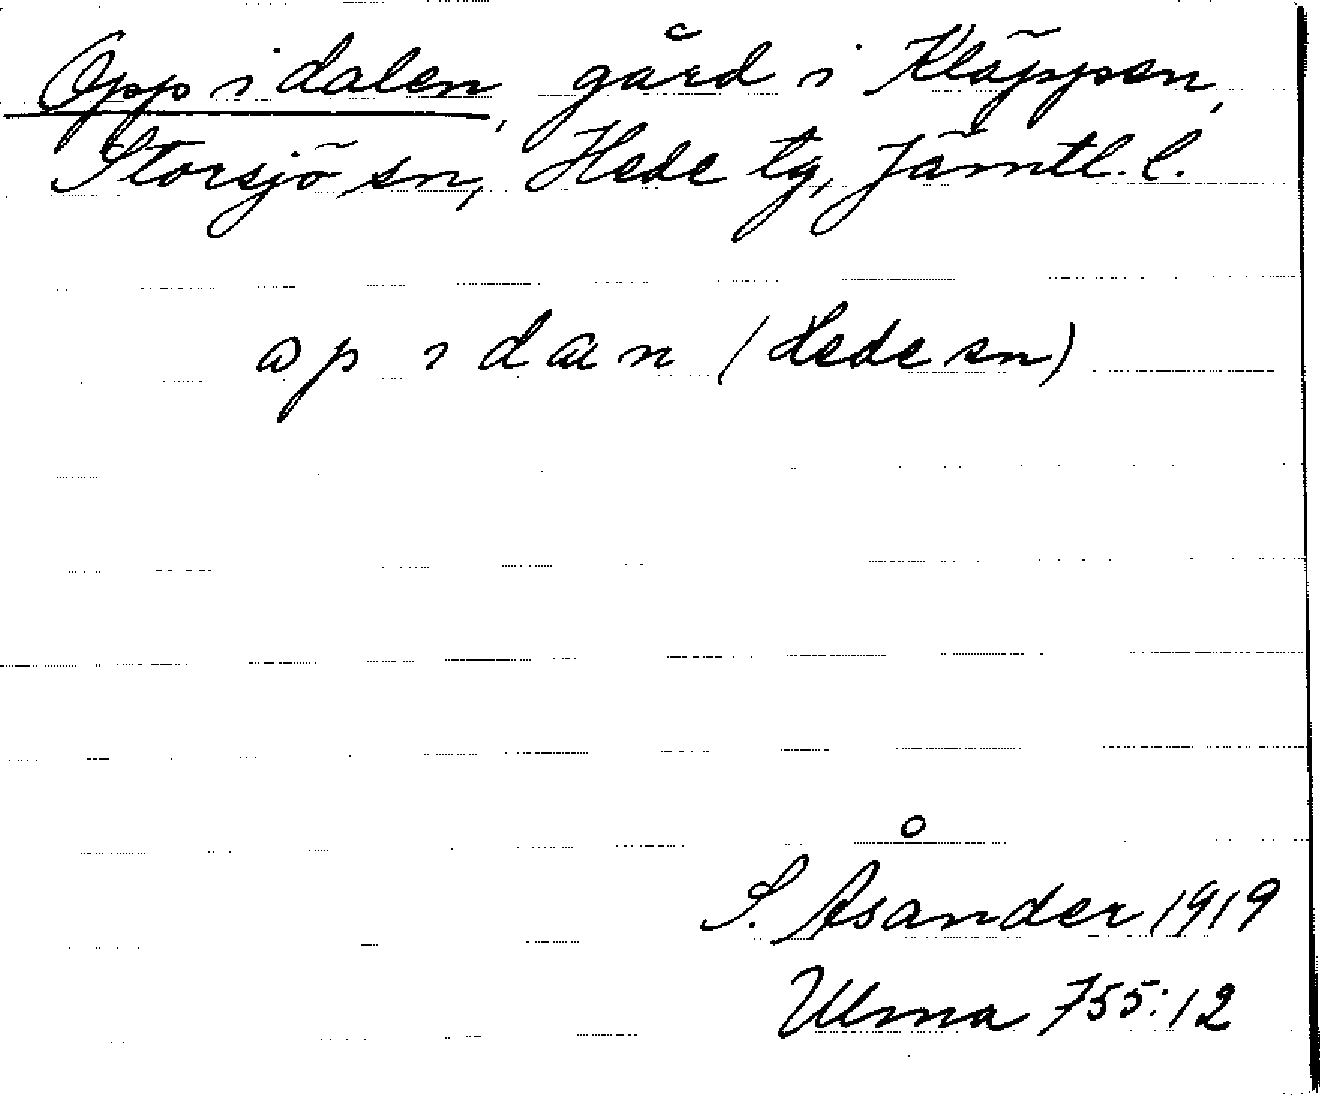 Opp i dalen, gård i Kläppen,
Storsjö sn, Hede tg, Jämtl. l.
op i dan (Hede sn)
S. Åsander 1919
Ulma 755:12